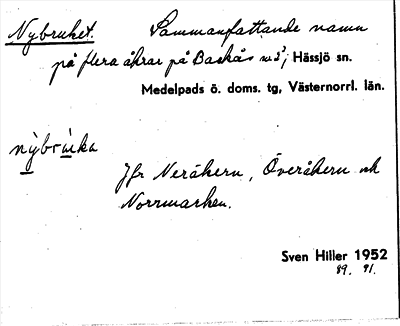 Nybruket. Sammanfattande namn
på flera åkrar på Backås n:s 3, Hässjö sn.
Medelpads ö. doms. tg, Västernorrl. län.
nỳbrùka
Jfr Neråkern, Överåkern och
Norrmarken.
Sven Hiller 1952
89. 91.